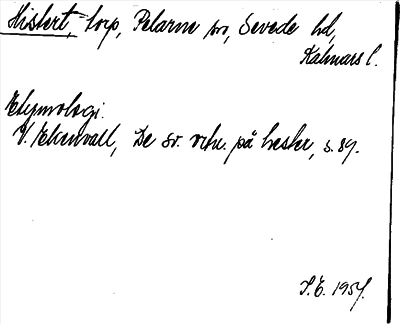 Hishert, torp, Pelarne sn, Sevede hd,
Kalmars l.
Etymologi.
V. Ekenvall, De sv. ortn. på -hester, s. 89.
S.E. 1957.